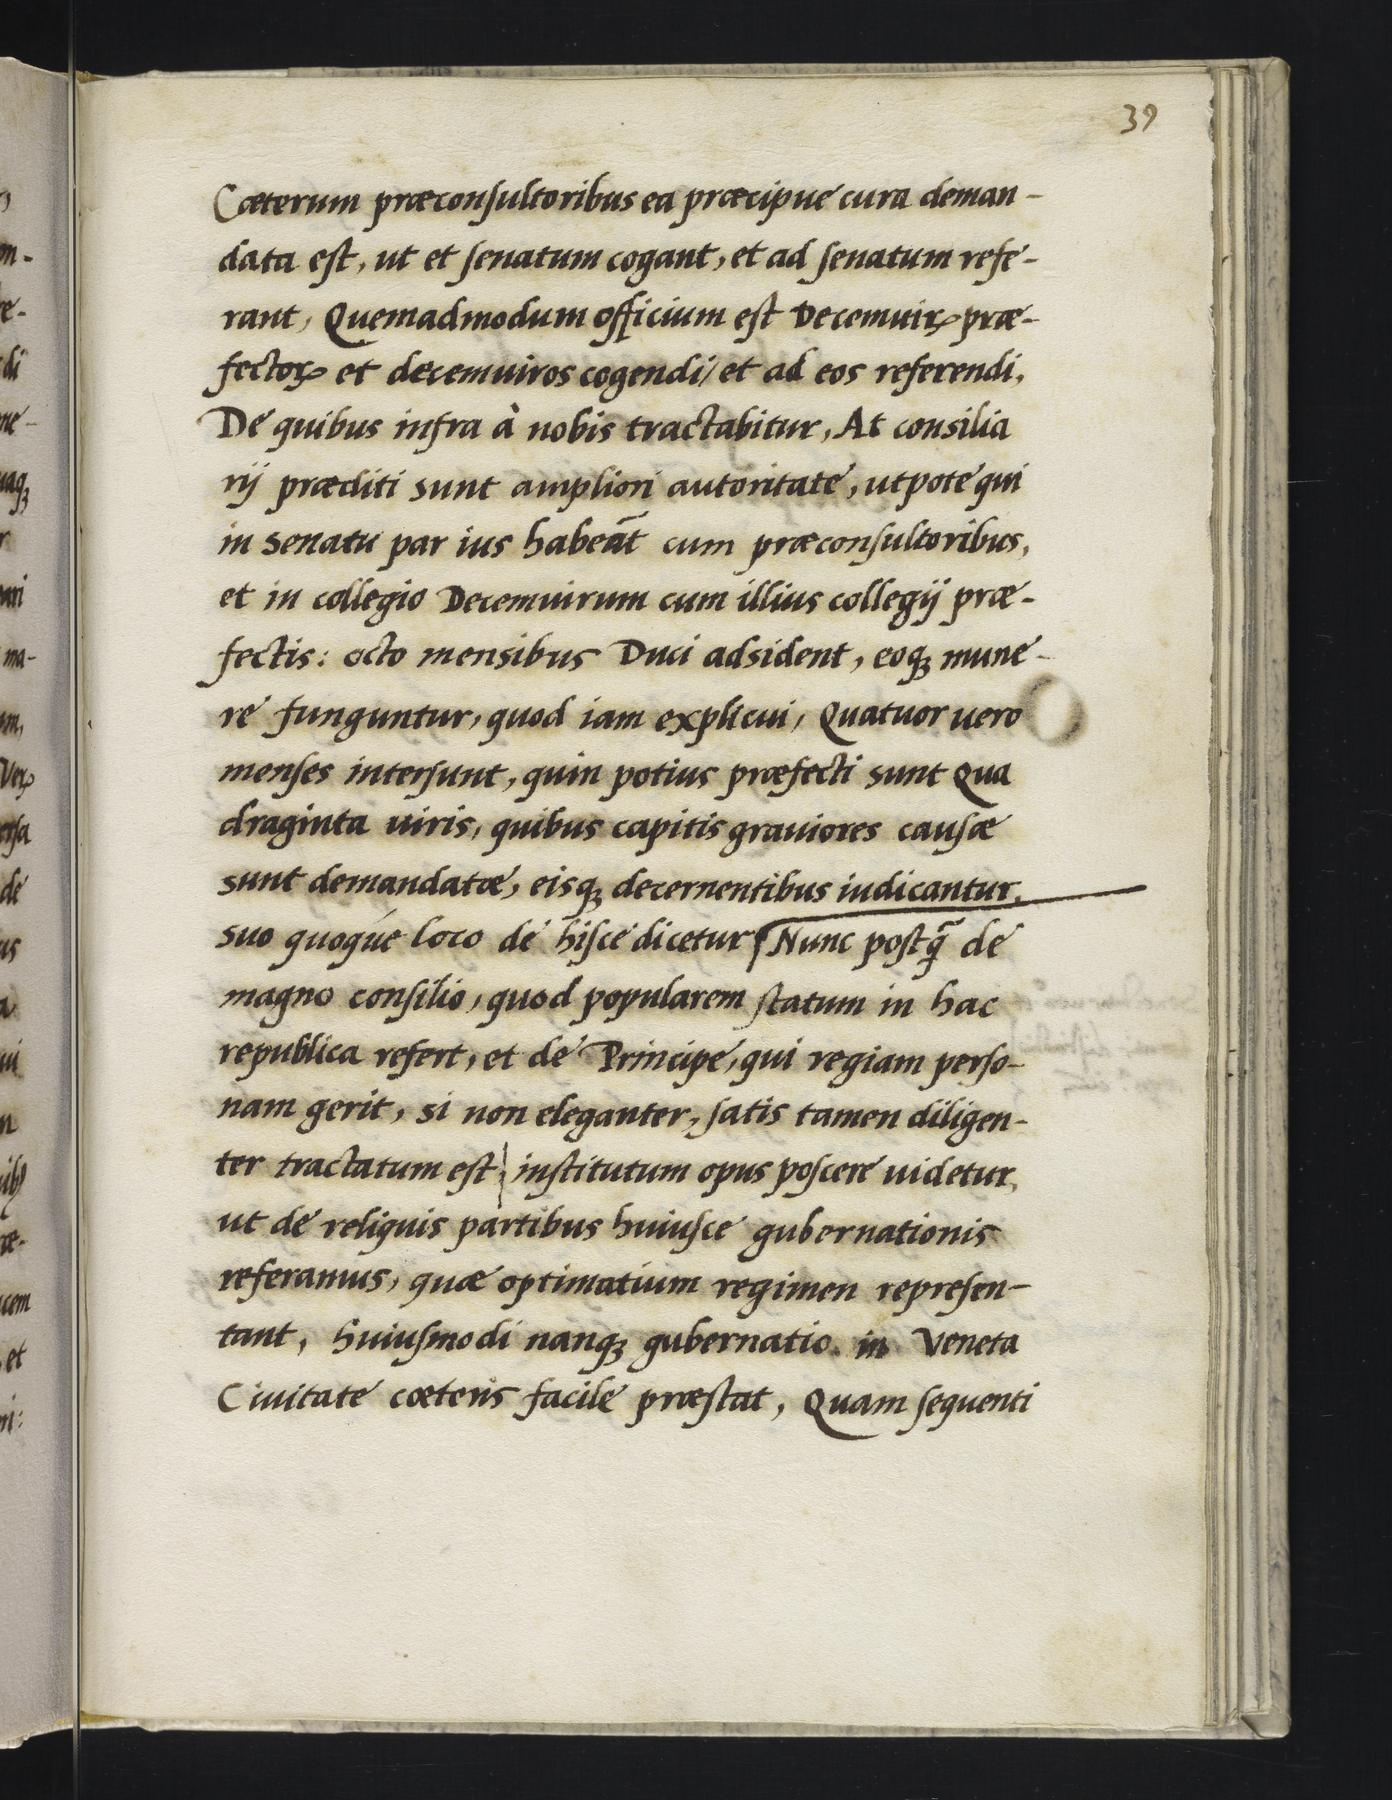 39
Cæterum præconsultoribus ea præcipue cura deman-
data est, ut et senatum cogant, et ad senatum refe-
rant, Quemadmodum officium est Decemuirꝝ præ-
fectorꝝ et decemuiros cogendi, et ad eos referendi,
De quibus infra à nobis tractabitur, At consilia
rij præditi sunt ampliori autoritate, utpote qui
in senatu par ius habeāt cum præconsultoribus,
et in collegio Decemuirum cum illius collegij præ-
fectis: octo mensibus Duci adsident, eoqꝫ mune-
re funguntur, quod iam explicui, Quatuor uero
menses intersunt, quin potius præfecti sunt Qua
draginta uiris, quibus capitis grauiores causæ
sunt demandatæ, eisqꝫ decernentibus iudicantur.
suo quoque loco de hisce dicetur Nunc postq̃ de
magno consilio, quod popularem statum in hac
republica refert, et de Principe, qui regiam perso-
nam gerit, si non eleganter, satis tamen diligen-
ter tractatum est, institutum opus poscere uidetur,
ut de reliquis partibus huiusce gubernationis
referamus, quæ optimatium regimen represen-
tant, huiusmodi nanqꝫ gubernatio. in Veneta
Ciuitate cæteris facile præstat, Quam sequenti